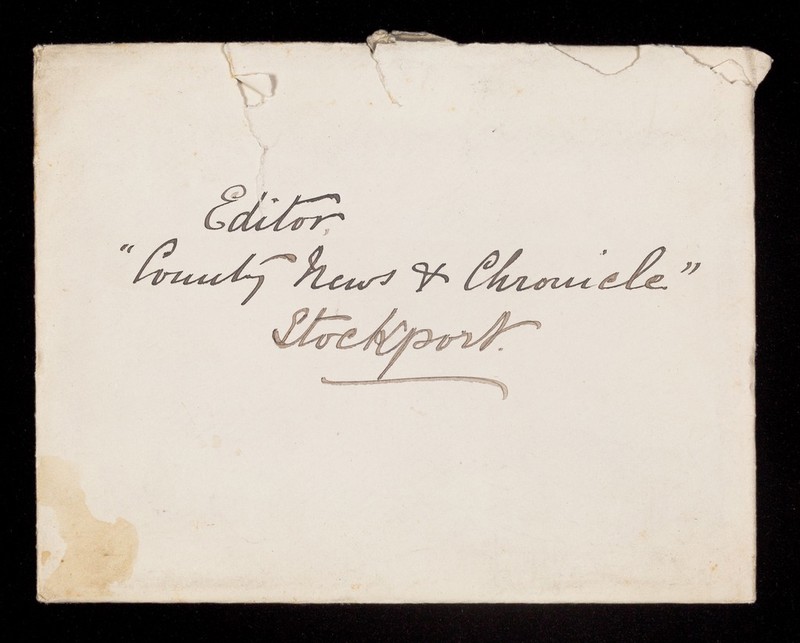 Editor,
"County News & Chronicle"
Stockport.